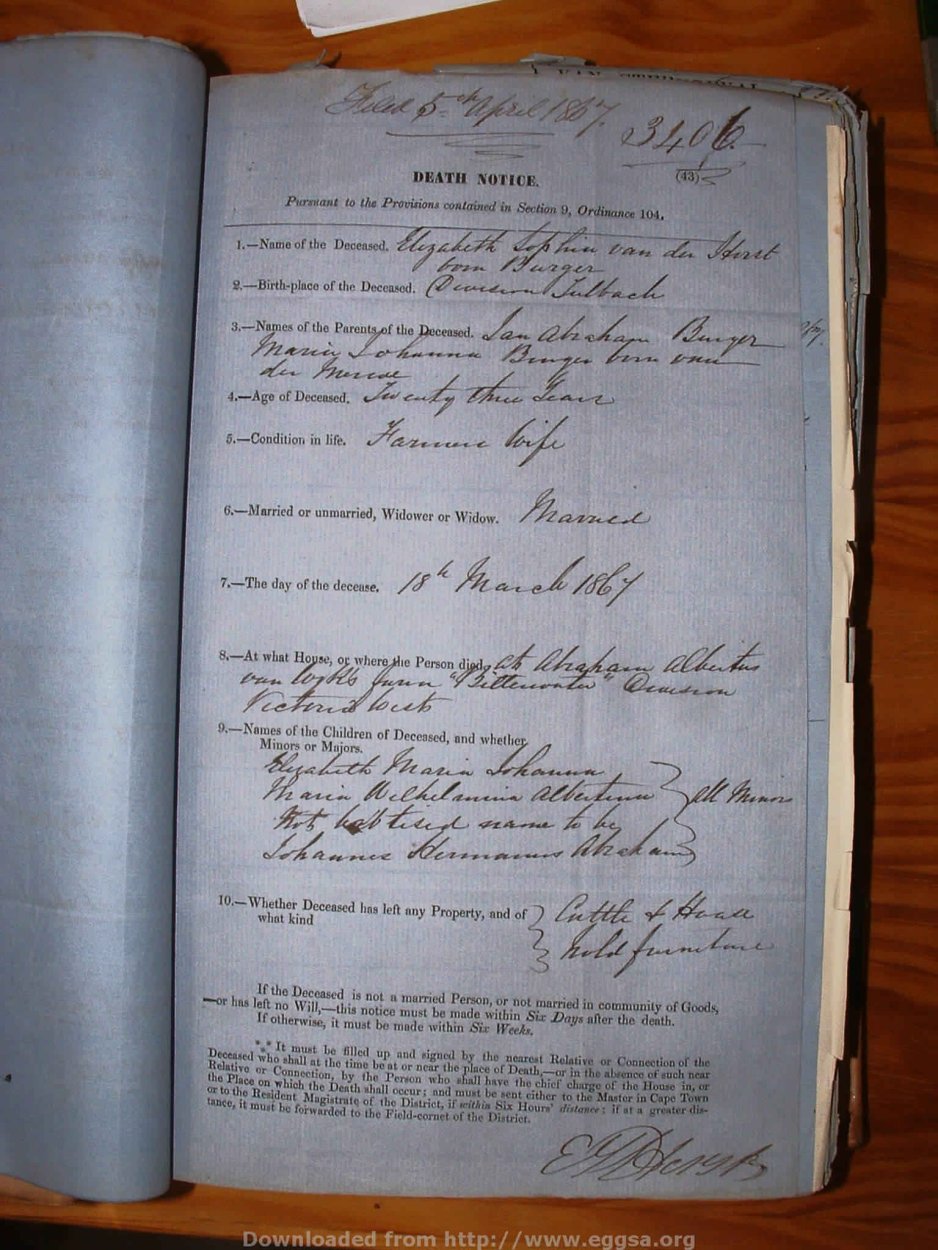 Filed 5th April 1867.
3406
(43)
DEATH NOTICE.
Pursuant to the Provisions contained in Section 9, Ordinance 104.
1.—Name of the Deceased. Elizabeth Sophia van der Horst
born Burger
2.—Birth-place of the Deceased. Division Tulbach
3.—Names of the Parents of the Deceased. Jan Abraham Burger
Maria Johanna Burger born van
der Merwe
4.—Age of Deceased. Twenty three Years
5.—Condition in life. Farmers Wife
6.—Married or unmarried, Widower or Widow. Married
7.—The day of the decease. 18th March 1867
8.—At what House, or where the Person died, at Abraham Albertus
van Wyk's farm "Bitterwater" Division
Victoria West
9.—Names of the Children of Deceased, and whether
Minors or Majors.
Elizabeth Maria Johanna
Maria Wilhelmina Albertina all Minors
Not babtised name to be
Johannes Hermanus Abraham
10.—Whether Deceased has left any Property, and of Cattle & House
what kind hold furniture
If the Deceased is not a married Person, or not married in community of Goods,
—or has left no Will,—this notice must be made within Six Days after the death.
If otherwise, it must be made within Six Weeks.
*** It must be filled up and signed by the nearest Relative or Connection of the
Deceased who shall at the time be at or near the place of Death,—or in the absence of such near
Relative or Connection, by the Person who shall have the chief charge of the House in, or
the Place on which the Death shall occur; and must be sent either to the Master in Cape Town
or to the Resident Magistrate of the District, if within Six Hours' distance; if at a greater dis-
tance, it must be forwarded to the Field-cornet of the District.
Downloaded from http://www.eggsa.org